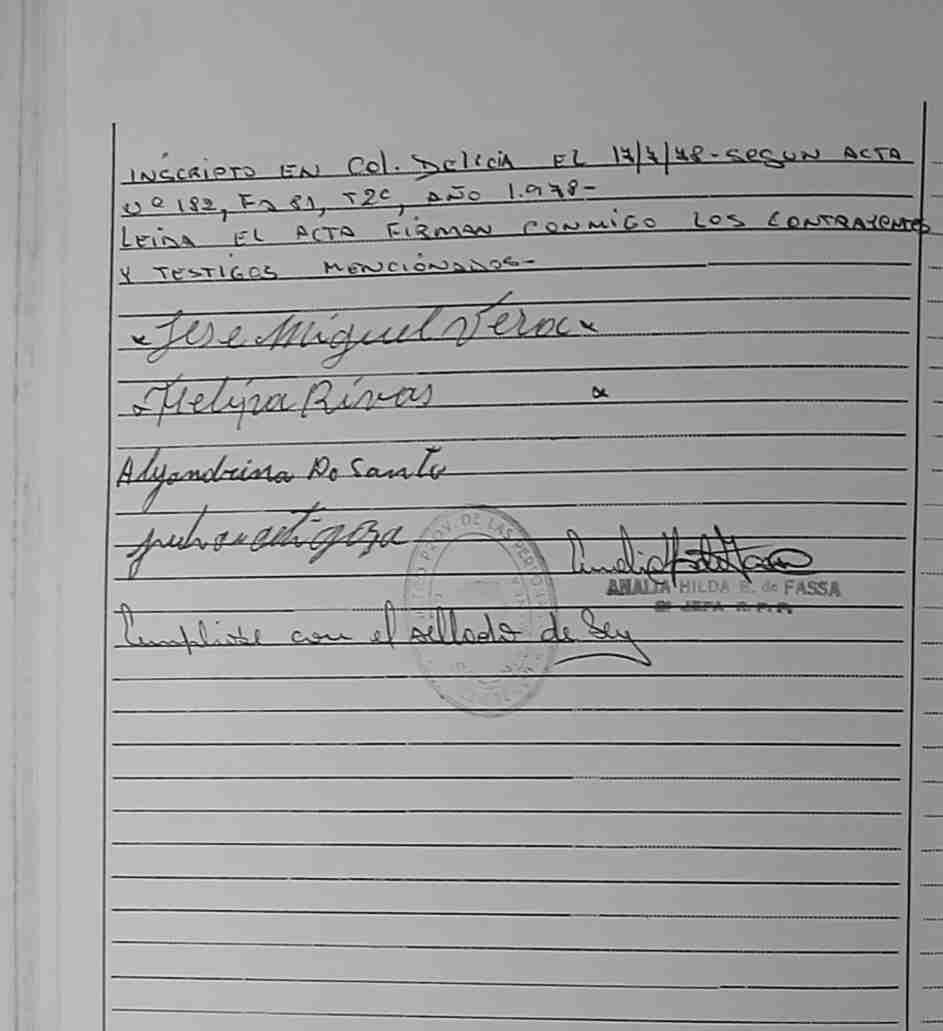 INSCRIPTO EN Col. Delicia EL 17/7/78-SEGUN ACTA
Nº 182, Fº 81, T2º, AÑO 1.978-
LEIDA EL ACTA FIRMAN CONMIGO LOS CONTRAYENTES
Y TESTIGOS MENCIONADOS-
Jose Miguel Vera
Felipa Rivas
Alejandrina Do Santo
PROV. DE LAS PERSO
ANALIA HILDA E. de FASSA
JEFA
Cumpliose con el sellado de Ley